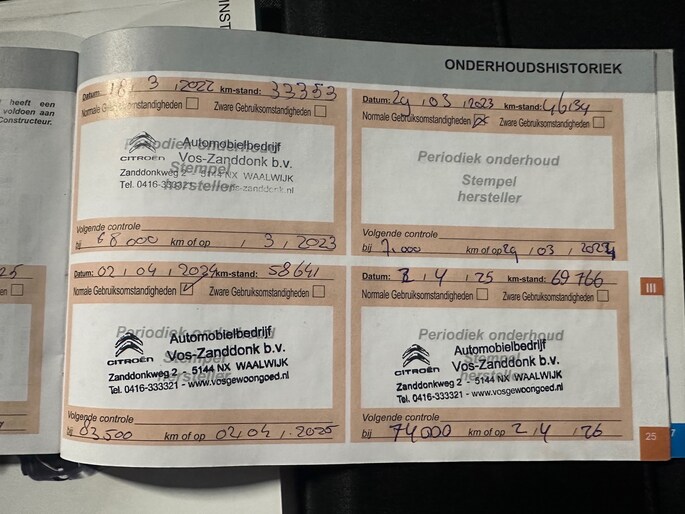 INST
ONDERHOUDSHISTORIEK
heeft een
voldoen aan
Constructeur.
Datum: 18 . 3 . 2022 km-stand: 33353
Normale Gebruiksomstandigheden Zware Gebruiksomstandigheden
Periodiek onderhoud
Stempel
hersteller
CITROËN
Automobielbedrijf
Vos-Zanddonk b.v.
Zanddonkweg 2 - 5144 NX WAALWIJK
Tel. 0416-333321
Volgende controle
bij 68000 km of op . 3 . 2023
Datum: 29 . 03 . 2023 km-stand:
Normale Gebruiksomstandigheden Zware Gebruiksomstandigheden
Periodiek onderhoud
Stempel
hersteller
Volgende controle
bij 7.000 km of op 29 . 03 . 2024
25
en
Datum: 02 . 04 . 2024 km-stand: 58641
Normale Gebruiksomstandigheden Zware Gebruiksomstandigheden
Periodiek onderhoud
Stempel
hersteller
CITROËN
Automobielbedrijf
Vos-Zanddonk b.v.
Zanddonkweg 2 - 5144 NX WAALWIJK
Tel. 0416-333321 - www.vosgewoongoed.nl
Volgende controle
bij 83.500 km of op 02.04.2025
Datum: 2 . 4 . 25 km-stand: 69766
Normale Gebruiksomstandigheden Zware Gebruiksomstandigheden
Periodiek onderhoud
Stempel
hersteller
CITROËN
Automobielbedrijf
Vos-Zanddonk b.v.
Zanddonkweg 2 - 5144 NX WAALWIJK
Tel. 0416-333321 - www.vosgewoongoed.nl
Volgende controle
bij 74000 km of op 2 . 4 . 26
III
25
7